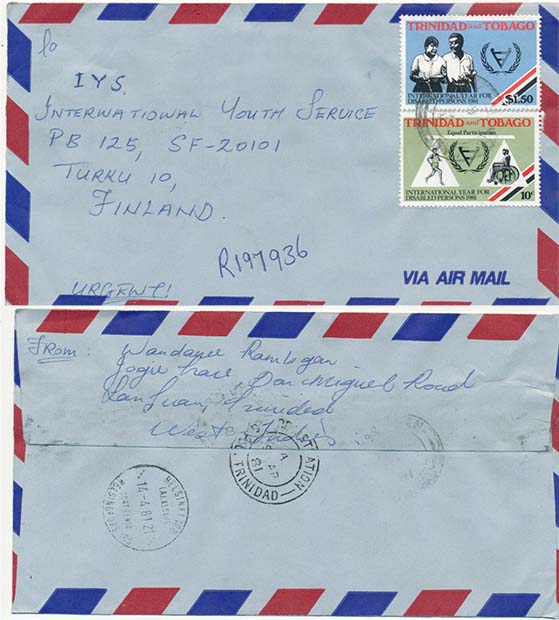 To
IYS.
INTERNATIONAL YOUTH SERVICE
PB 125, SF-20101
TURKU 10,
FINLAND.
R197936
URGENT!
VIA AIR MAIL
TRINIDAD and TOBAGO
INTERNATIONAL YEAR FOR
DISABLED PERSONS 1981
$1.50
TRINIDAD and TOBAGO
Equal Participation
INTERNATIONAL YEAR FOR
DISABLED PERSONS 1981
10c
From:
Ramlogan
Jogie Trace Don Miguel Road
San Juan, Trinidad
West Indies
STATION
AP
81
TRINIDAD
HELSINKI
14-4.81.21
HELSINGFORS